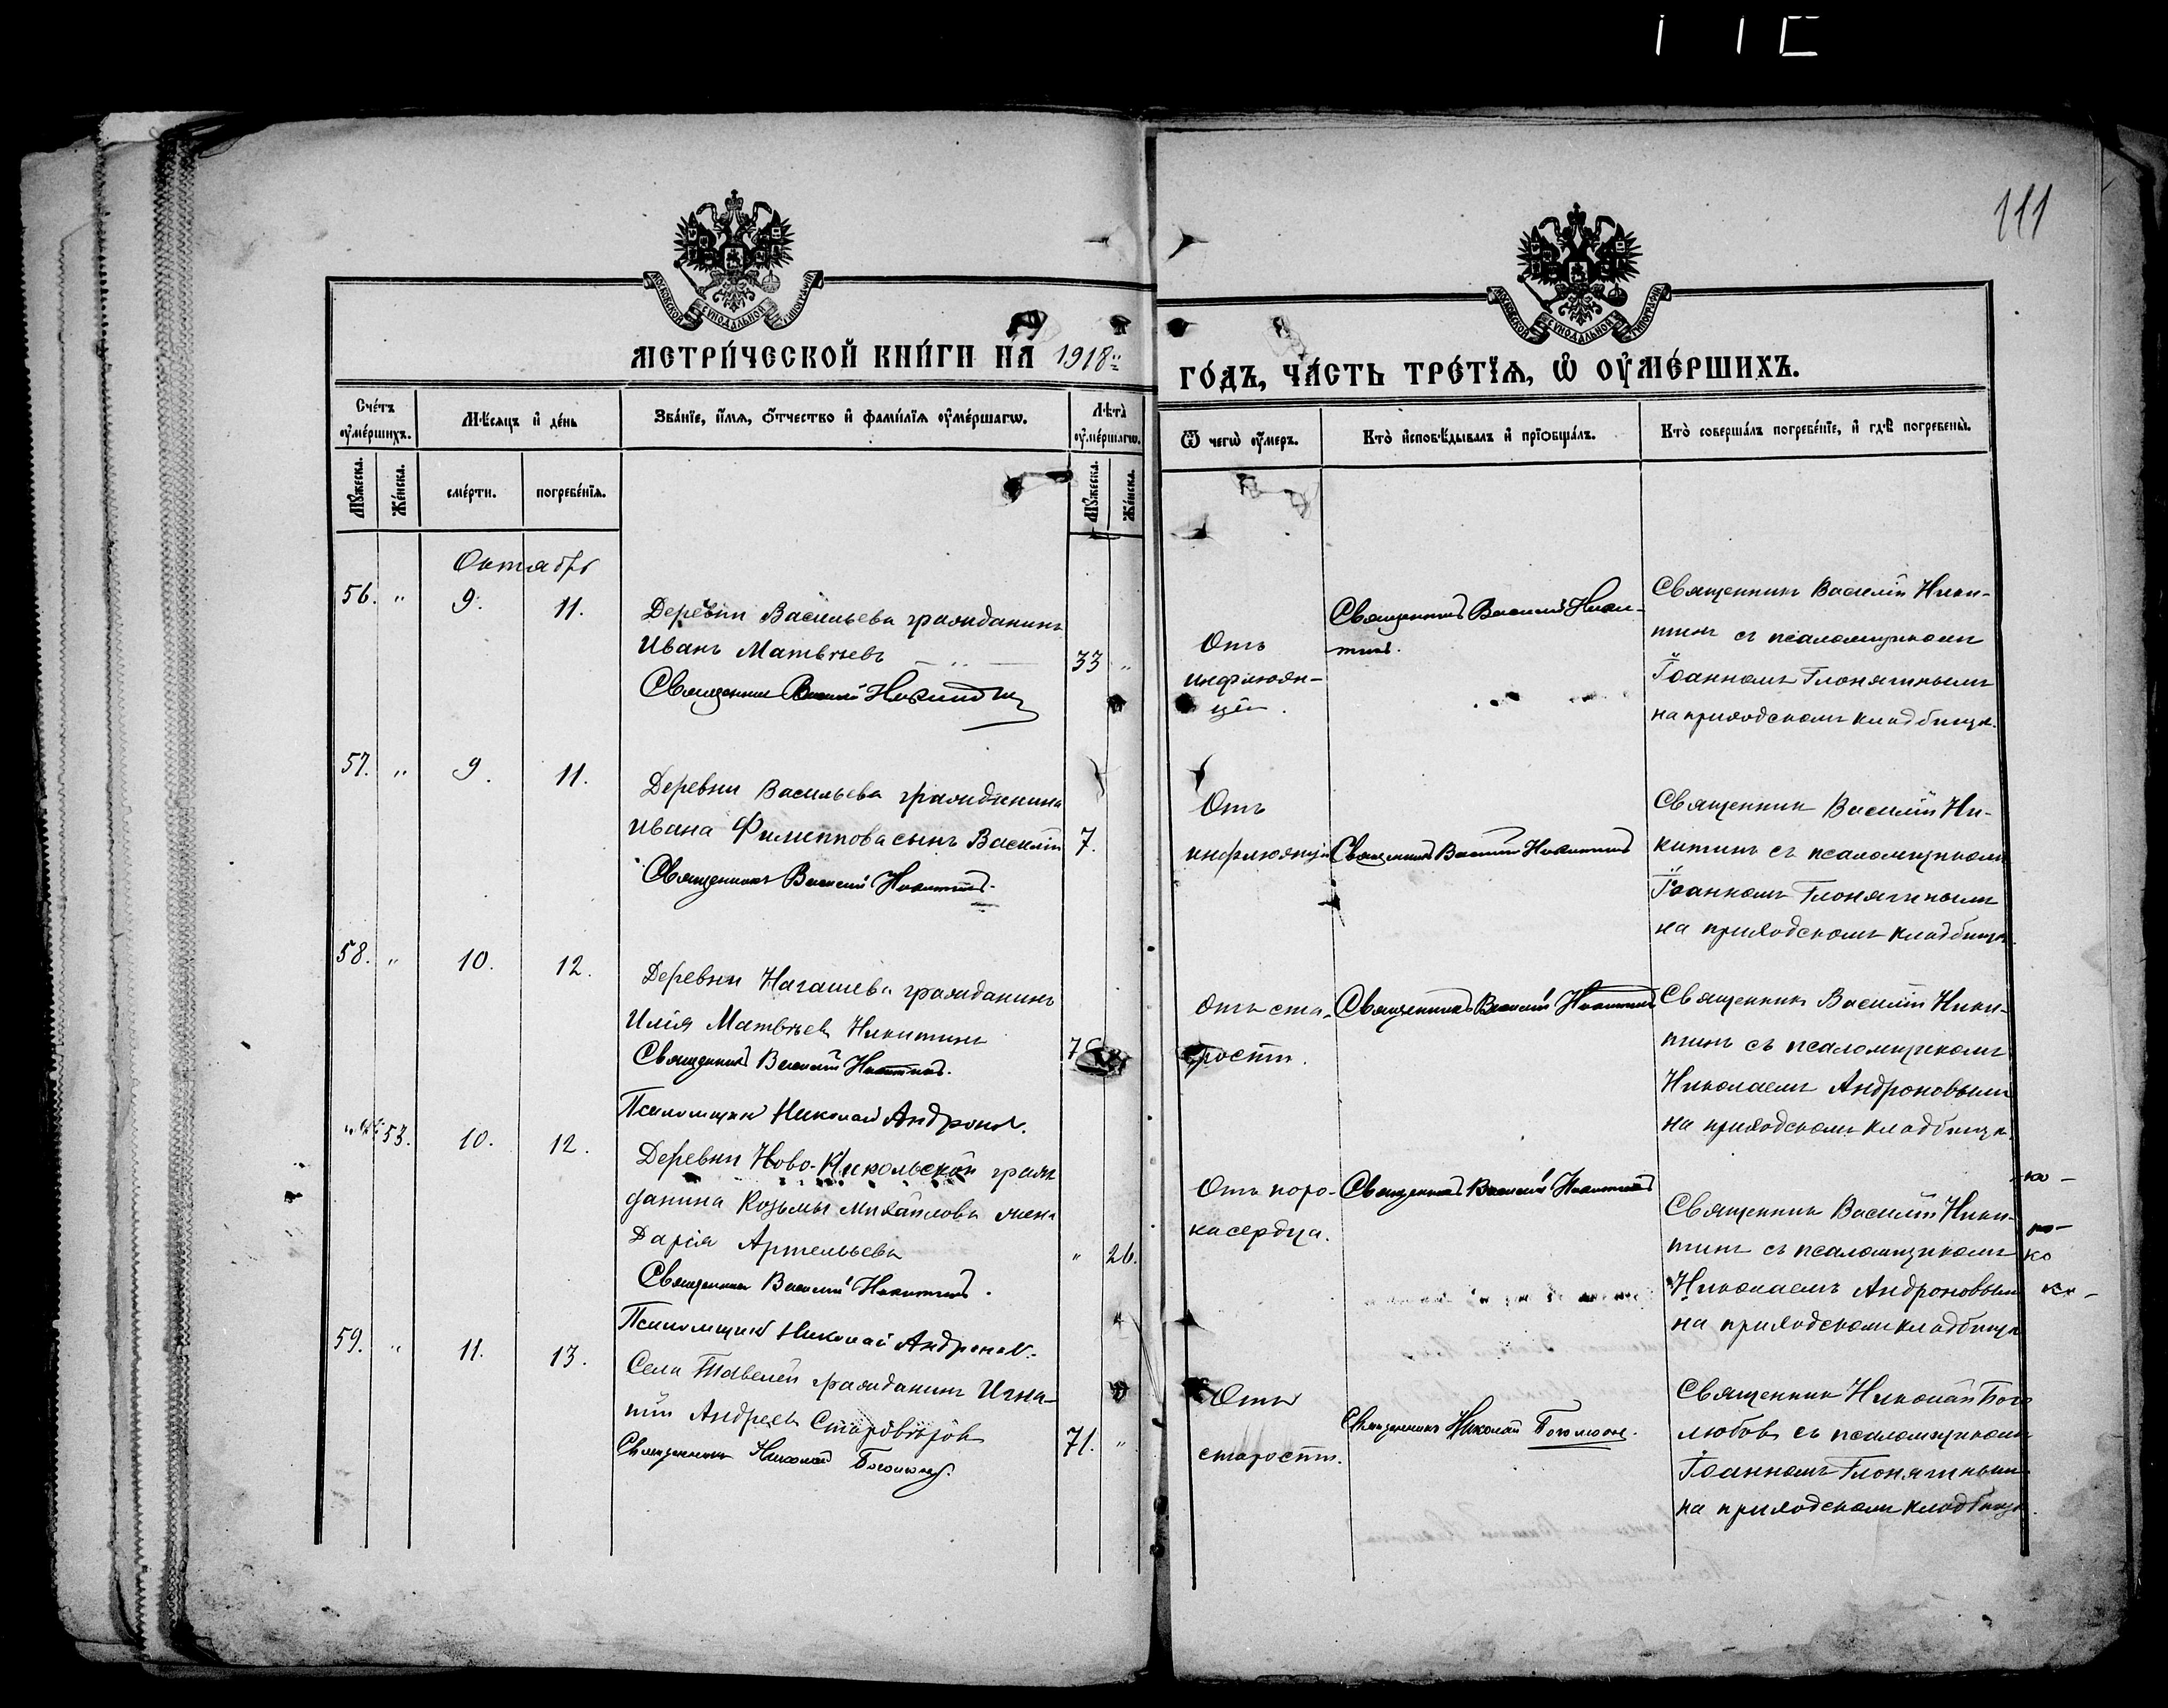 111
МОСКОВСКОЙ СѴНОДАЛЬНОЙ ТИПОГРАФІИ
МОСКОВСКОЙ СѴНОДАЛЬНОЙ ТИПОГРАФІИ
МЕТРИ́ЧЕСКОЙ КНИ́ГИ НА 1918й
ГО́ДЪ, ЧА́СТЬ ТРЕ́ТЇѦ, Ѡ҆ ОУ҆МЕ́РШИХЪ.
Сче́тъ оу҆ме́ршихъ.
Мѣ́сяцъ и҆ де́нь
Зва́нїе, и҆́мѧ, ѻ҆́тчество и҆ фами́лїѧ оу҆ме́ршагѡ.
Лѣ́та оу҆ме́ршагѡ.
Ѿ чегѡ̀ оу҆́меръ.
Кто̀ и҆сповѣ́дывалъ и҆ прїѻбща́лъ.
Кто̀ соверша́лъ погребе́нїе, и҆ гдѣ̀ погребены̀.
Мꙋ́жеска.
Же́нска.
сме́рти.
погребе́нїѧ.
Мꙋ́жеска.
Же́нска.
Октябрь
56. " 9. 11.
Деревни Васильева гражданинъ
Иванъ Матвѣевъ
33 "
Священникъ Василій Никитинъ
Отъ
инфлюэн-
ціи.
Священникъ Василій Ники-
тинъ.
Священникъ Василій Ники-
тинъ съ псаломщикомъ
Іоанномъ
на приходскомъ кладбищѣ.
57. " 9. 11.
Деревни Васильева гражданина
Ивана Филиппова сынъ Василій
7.
Священникъ Василій Никитинъ.
Отъ
инфлюэнціи
Священникъ Василій Никитинъ
Священникъ Василій Ни-
китинъ съ псаломщикомъ
Іоанномъ
на приходскомъ кладбищѣ.
58. " 10. 12.
Деревни гражданинъ
Илія Матвѣевъ Никитинъ
Священникъ Василій Никитинъ.
Псаломщикъ Николай Андроновъ.
Отъ ста-
рости.
Священникъ Василій Никитинъ
Священникъ Василій Ники-
тинъ съ псаломщикомъ
Николаемъ Андроновымъ
на приходскомъ кладбищѣ.
53. 10. 12.
Деревни Ново-Никольской граж
данина Козьмы Михайлова жена
Дарія Артемьева
" 26.
Священникъ Василій Никитинъ.
Псаломщикъ Николай Андроновъ.
Отъ поро-
ка сердца.
Священникъ Василій Никитинъ
Священникъ Василій Ники-
тинъ съ псаломщикомъ
Николаемъ Андроновымъ
на приходскомъ кладбищѣ
59. " 11. 13.
Села Тавелей гражданинъ Игна-
тій Андреевъ Старовѣровъ
71. "
Священникъ Николай Боголюбовъ.
Отъ
старости.
Священникъ Николай Боголюбовъ.
Священникъ Николай Бого
любовъ съ псаломщикомъ
Іоанномъ
на приходскомъ кладбищѣ.